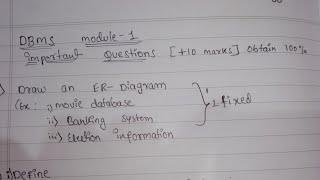 DBMS module-1
Important Questions [+10 marks] Obtain 100%
Draw an ER-Diagram
(Ex: i) movie database
ii) Banking system
iii) Election information
1 fixed
Define